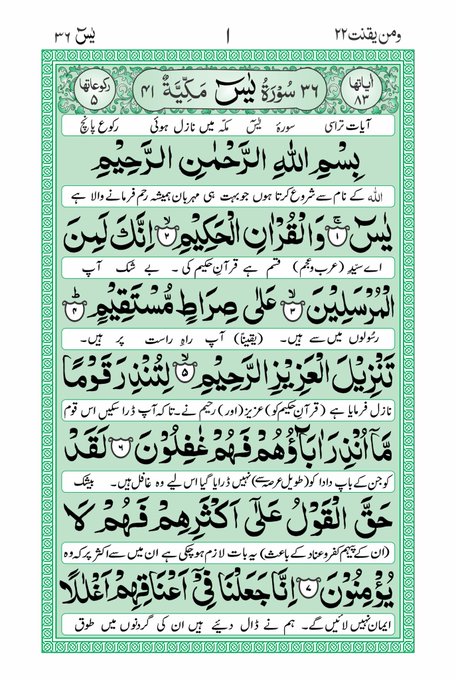 ومن یقنت ۲۲ ا یٰسٓ ۳۶
اٰیاتھا ۸۳ ۳۶ سُوْرَۃُ یٰسٓ مَکِّیَّۃٌ ۴۱ رکوعاتھا ۵
آیات تراسی سورۂ یٰسٓ مکہ میں نازل ہوئی رکوع پانچ
بِسْمِ اللّٰهِ الرَّحْمٰنِ الرَّحِیْمِ
اللہ کے نام سے شروع کرتا ہوں جو بہت ہی مہربان ہمیشہ رحم فرمانے والا ہے
یٰسٓ ۚ﴿۱﴾ وَالْقُرْاٰنِ الْحَکِیْمِ ۙ﴿۲﴾ اِنَّكَ لَمِنَ
اے سیّدِ (عرب و عجم) قسم ہے قرآنِ حکیم کی ۔ بے شک آپ
الْمُرْسَلِیْنَ ۙ﴿۳﴾ عَلٰی صِرَاطٍ مُّسْتَقِیْمٍ ؕ﴿۴﴾
رسُولوں میں سے ہیں۔ (یقیناً) آپ راہِ راست پر ہیں۔
تَنْزِیْلَ الْعَزِیْزِ الرَّحِیْمِ ۙ﴿۵﴾ لِتُنْذِرَ قَوْمًا
نازل فرمایا ہے (قرآنِ حکیم کو) عزیز (اور) رحیم نے۔ تاکہ آپ ڈرا سکیں اس قوم
مَّاۤ اُنْذِرَ اٰبَآؤُهُمْ فَهُمْ غٰفِلُوْنَ ﴿۶﴾ لَقَدْ
کو جن کے باپ دادا کو (طویل عرصہ سے) نہیں ڈرایا گیا اس لیے وہ غافل ہیں۔ بیشک
حَقَّ الْقَوْلُ عَلٰۤی اَکْثَرِهِمْ فَهُمْ لَا
(ان کے پیہم کفر و عناد کے باعث) یہ بات لازم ہو چکی ہے ان میں سے اکثر پر کہ وہ
یُؤْمِنُوْنَ ﴿۷﴾ اِنَّا جَعَلْنَا فِیْۤ اَعْنَاقِهِمْ اَغْلٰلًا
ایمان نہیں لائیں گے۔ ہم نے ڈال دئیے ہیں ان کی گردنوں میں طوق